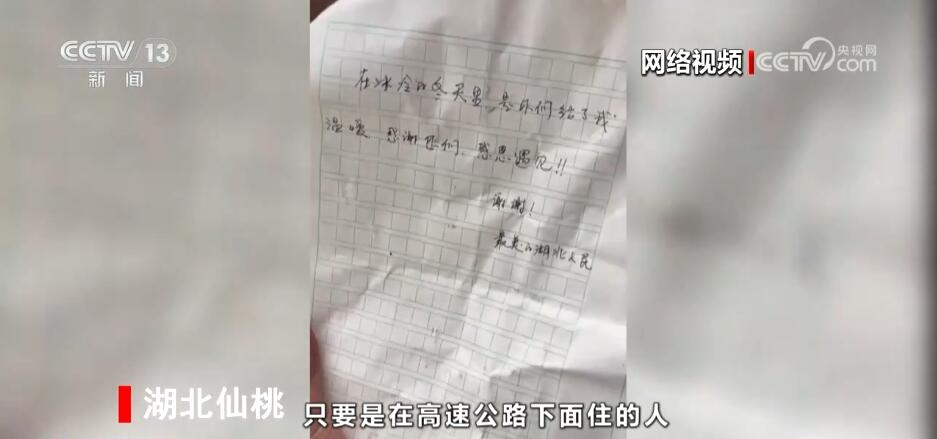 CCTV 13
新闻
网络视频
CCTV 央视网
com
在冰冷的冬天里,是你们给了我
温暖,感谢你们,感恩遇见!!
谢谢!
最美的湖北人民
湖北仙桃
只要是在高速公路下面住的人